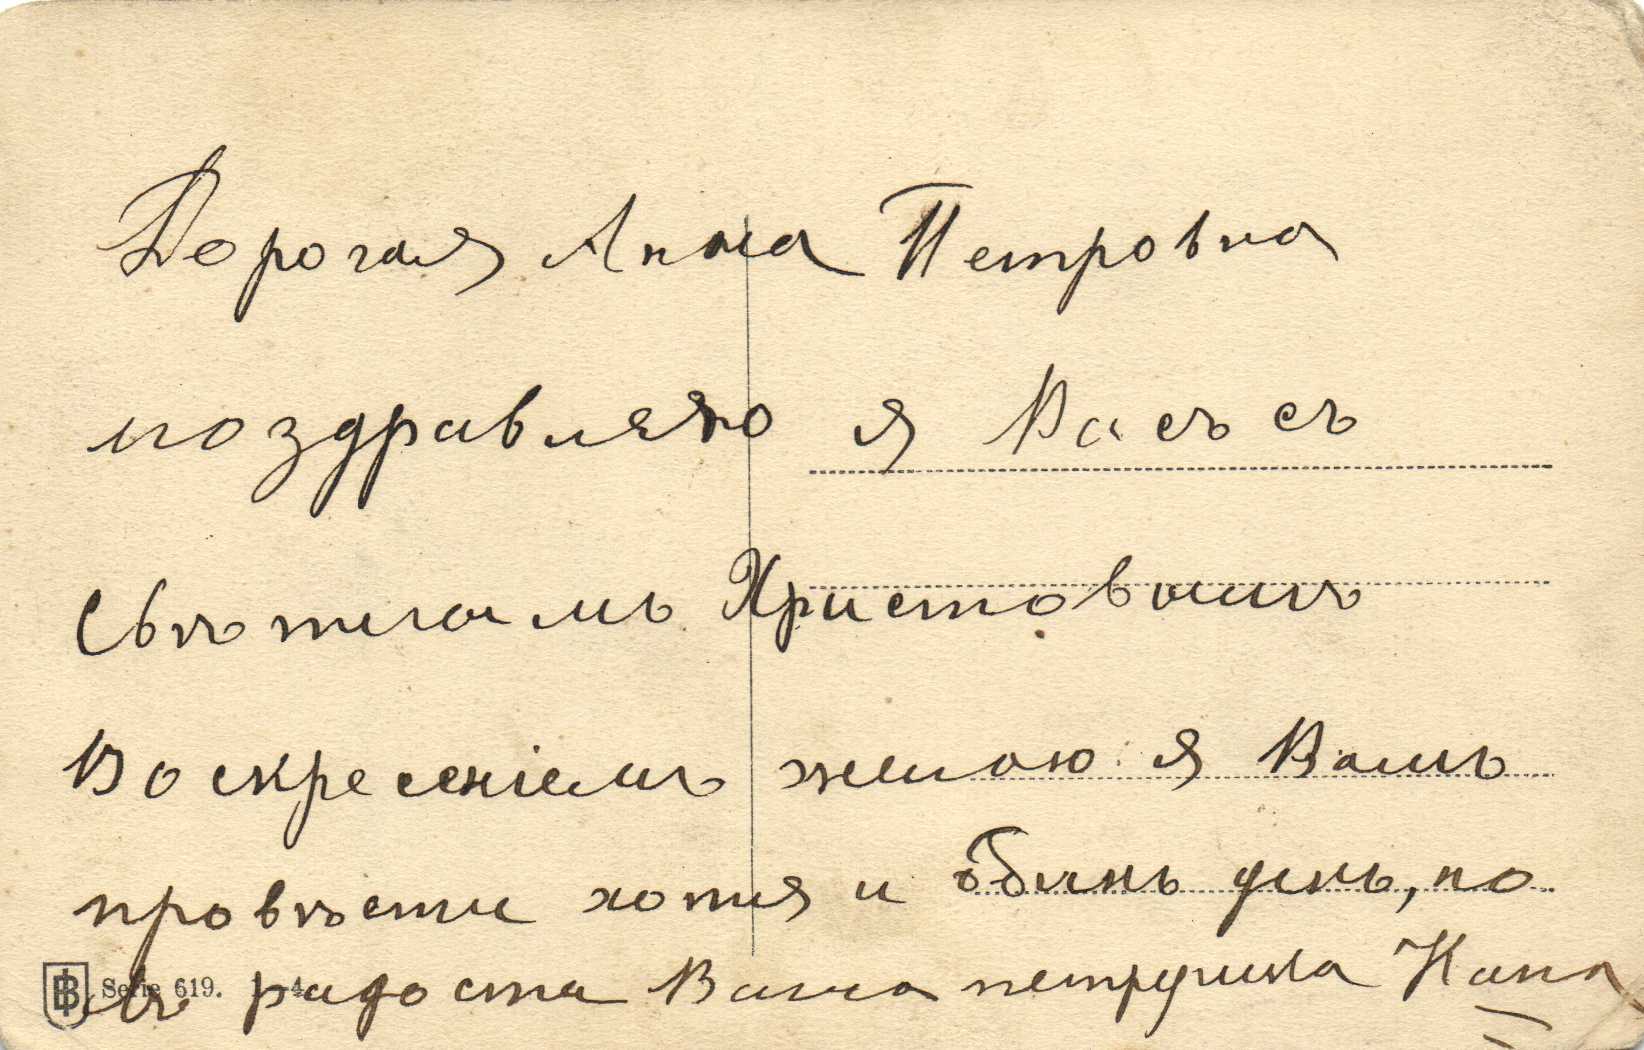 Дорогая Анна Петровна
поздравляю я Васъ съ
Свѣтлымъ Христовымъ
Воскресеніемъ желаю я Вамъ
провѣсти хотя и день, но
въ радости Ваша
Serie 619.